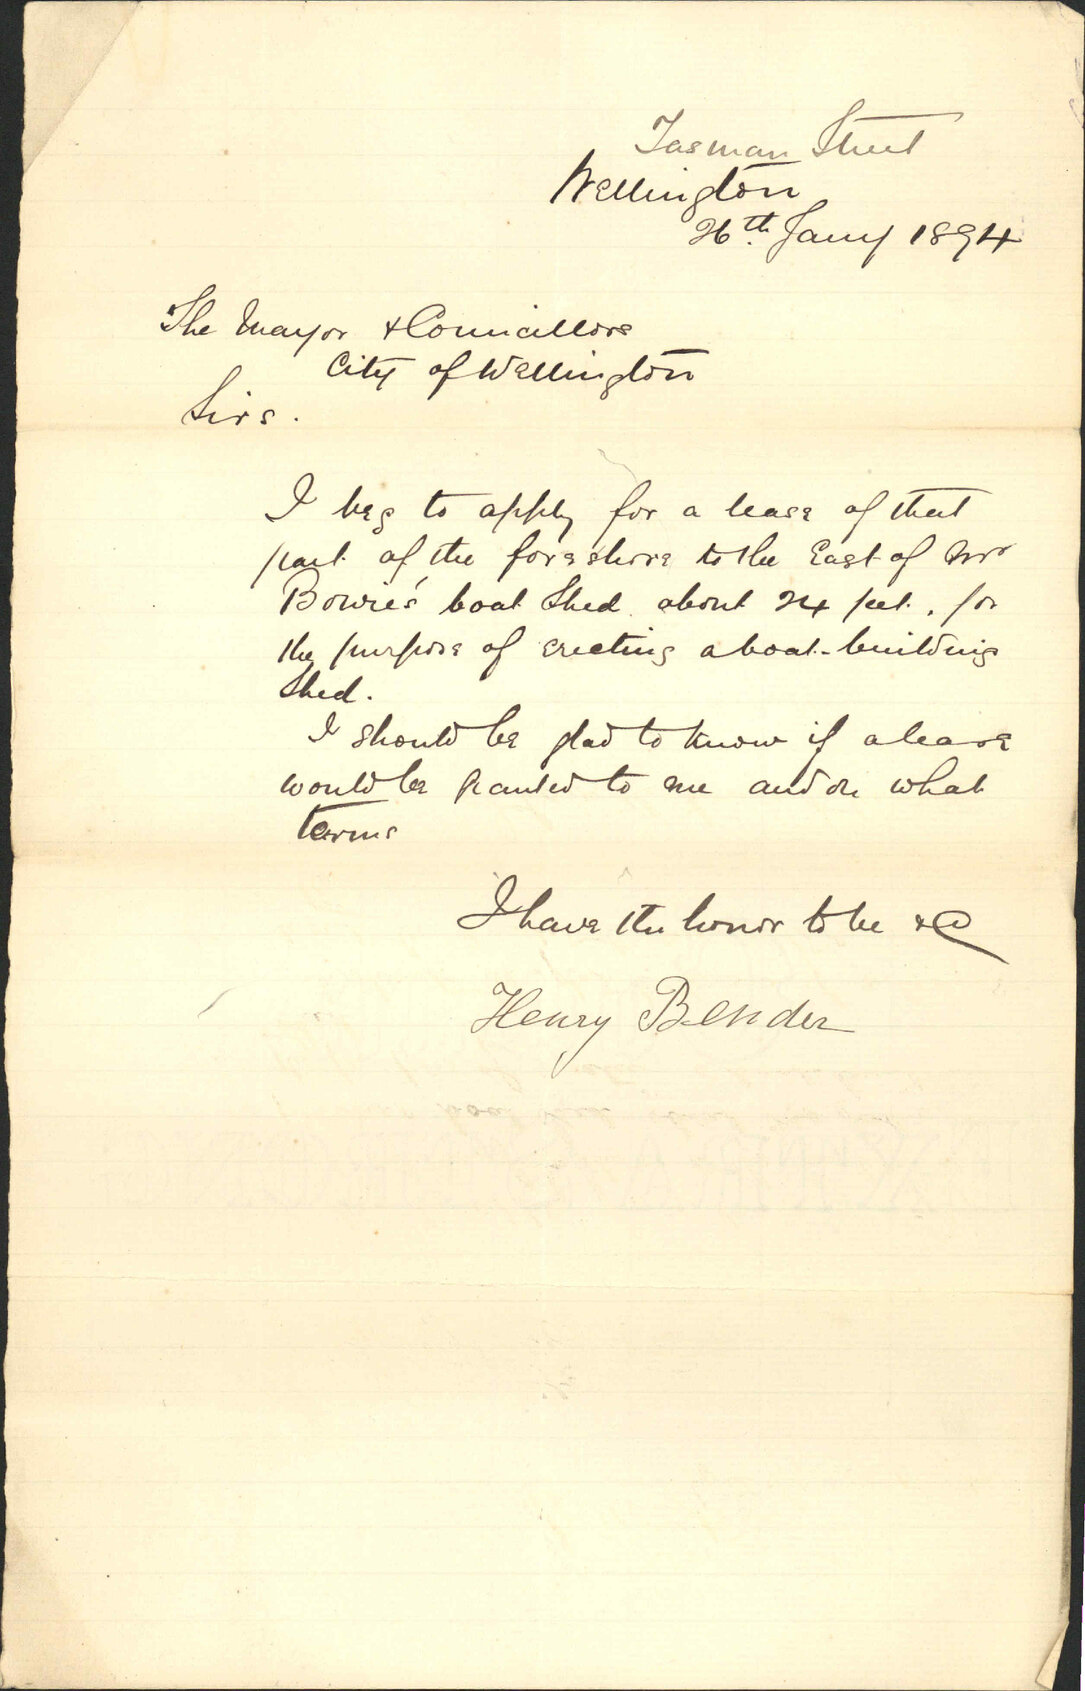 Tasman Street
Wellington
26th. Jany 1894
The Mayor & Councillors
City of Wellington
Sirs.
I beg to apply for a lease of that
part of the foreshore to the East of Mr
Bowie's boat Shed about 24 feet, for
the purpose of erecting a boat-building
Shed.
I should be glad to know if a lease
would be granted to me and on what
terms
I have the honor to be &c
Henry Bender